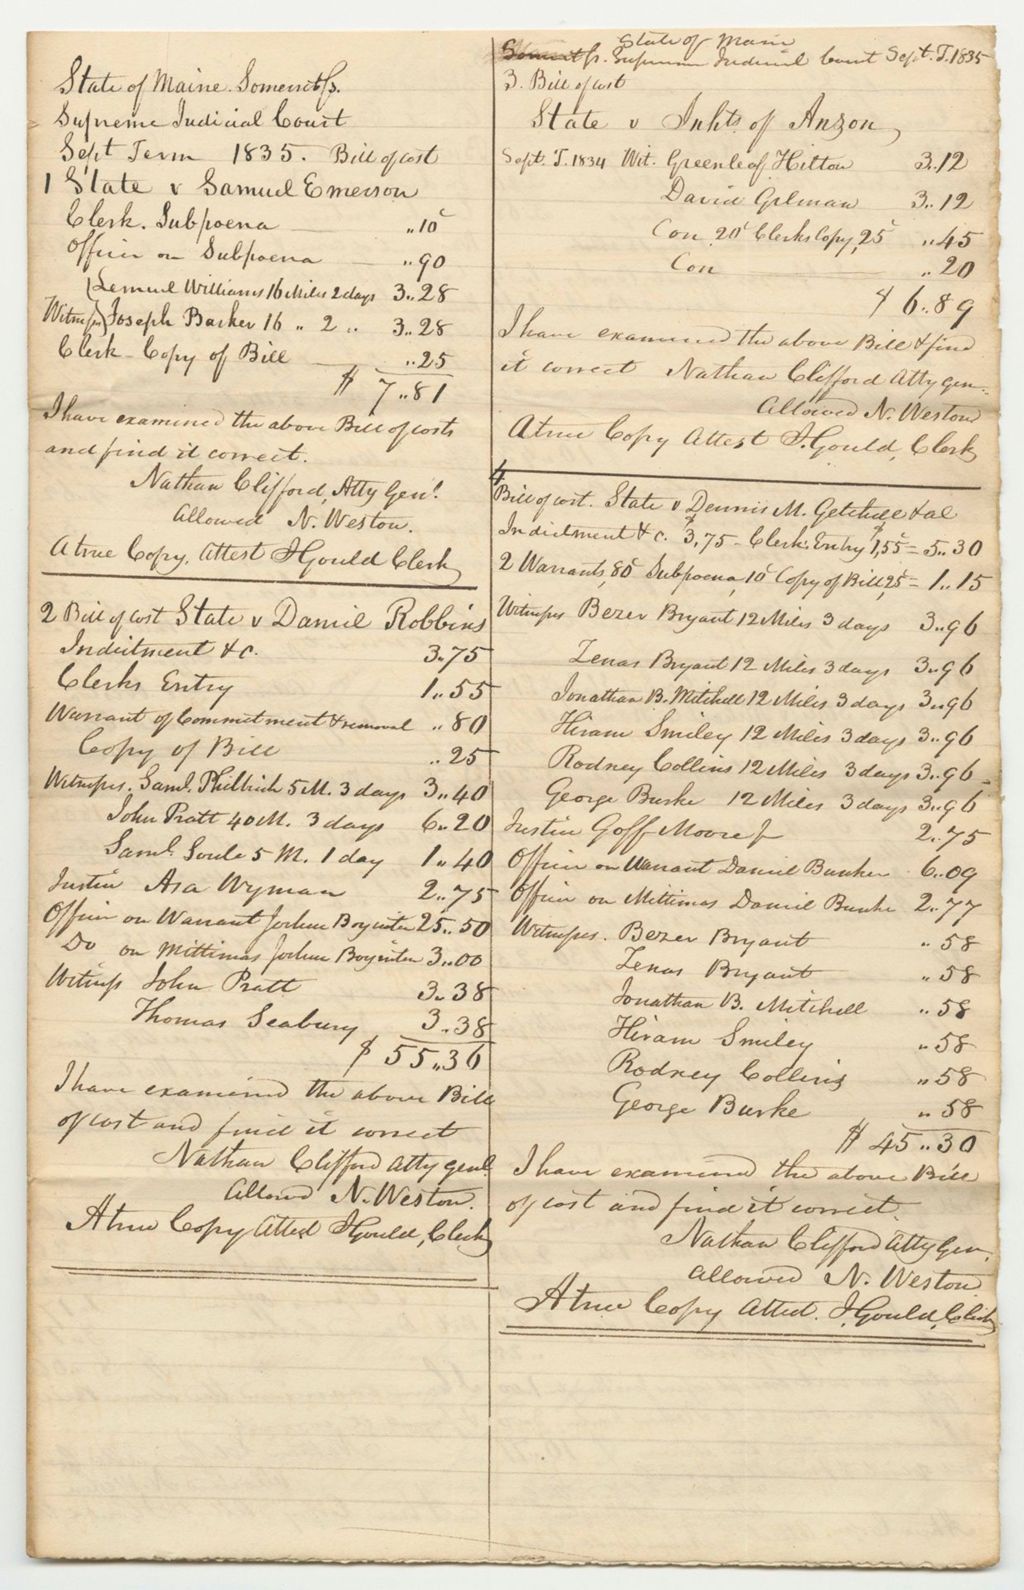 State of Maine. Somerset ss.
Supreme Judicial Court
Sept Term 1835. Bill of cost
1 State v Samuel Emerson
Clerk. Subpoena ,,10c
Officer on Subpoena ,,90
Lemuel Williams 16 Miles 2 days 3,,28
Witness Joseph Barker 16 ,, 2 ,, 3,,28
Clerk Copy of Bill ,,25
$ 7,,81
I have examined the above Bill of costs
and find it correct.
Nathan Clifford, Atty Genl.
Allowed N. Weston.
A true Copy. Attest J Gould Clerk
2 Bill of cost State v Daniel Robbins
Indictment &c. 3,,75
Clerks Entry 1,,55
Warrant of Commitment & removal ,,80
Copy of Bill ,,25
Witnesses. Saml. Philbrick 5 M. 3 days 3,,40
John Pratt 40 M. 3 days 6,,20
Saml. Soule 5 M. 1 day 1,,40
Justice Asa Wyman 2,,75
Officer on Warrant Joshua Boyinton 25,,50
Do on Mittimas Joshua Boyinton 3,,00
Witness John Pratt 3,,38
Thomas Seabury 3,,38
$ 55,,36
I have examined the above Bill
of cost and find it correct
Nathan Clifford Atty Genl.
Allowed N. Weston.
A true Copy Attest J Gould, Clerk
State of Maine
Somerset ss. Supreme Judicial Court Sept. T. 1835
3. Bill of cost
State v Inhts. of Anson
Sept. T. 1834 Wit. Greenleaf Hilton 3,,12
David Gilman 3,,12
Con 20c Clerks Copy, 25c ,,45
Con ,,20
$ 6,,89
I have examined the above Bill & find
it correct Nathan Clifford Atty Gen.
Allowed N. Weston
A true Copy Attest J. Gould, Clerk
4
Bill of cost. State v Dennis M. Getchell & al
Indictment &c. $3,75 - Clerks Entry $1,55c = 5,,30
2 Warrants, 80c Subpoena, 10c Copy of Bill, 25c = 1,,15
Witnesses Bezer Bryant 12 Miles 3 days 3,,96
Zenas Bryant 12 Miles 3 days 3,,96
Jonathan B. Mitchell 12 Miles 3 days 3,,96
Hiram Smiley 12 Miles 3 days 3,,96
Rodney Collins 12 Miles 3 days 3,,96
George Burke 12 Miles 3 days 3,,96
Justice Goff Moore Jr 2,,75
Officer on Warrant Daniel Bunker 6,,09
Officer on Mittimas Daniel Bunke 2,,77
Witnesses. Bezer Bryant ,,58
Zenas Bryant ,,58
Jonathan B. Mitchell ,,58
Hiram Smiley ,,58
Rodney Collins ,,58
George Burke ,,58
$ 45,,30
I have examined the above Bill
of cost and find it correct.
Nathan Clifford Atty Gen.
Allowed N. Weston
A true Copy Attest. J. Gould, Clerk